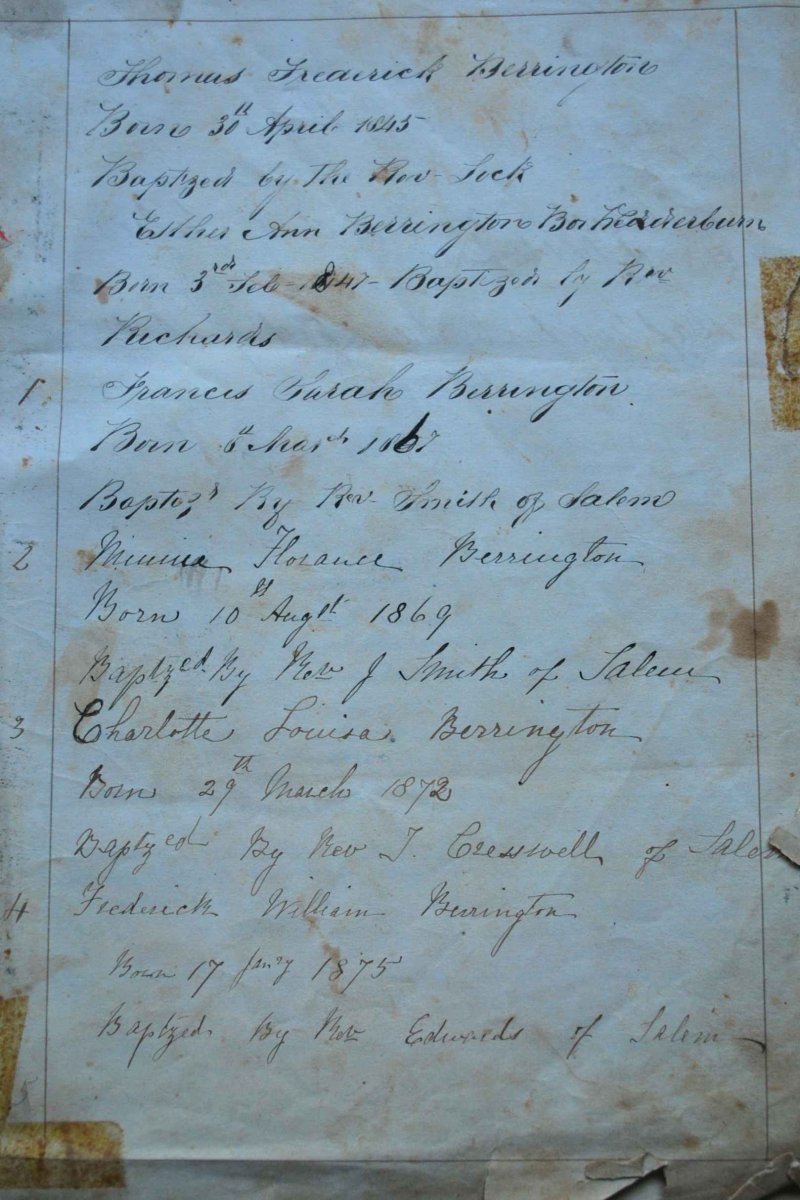 Thomas Frederick Berrington
Born 30th April 1845
Baptzed by The Rev Lock
Esther Ann Berrington
Born 3rd Feb 1847 Baptzed by Rev
Richards
1 Francis Sarah Berrington
Born 6th Mar 1867
Baptzd By Rev Smith of Salem
2 Minnie Florance Berrington
Born 10th Augst 1869
Baptzed By Rev J Smith of Salem
3 Charlotte Louisa Berrington
Born 29th March 1872
Baptzed By Rev T. Cresswell of Salem
4 Frederick William Berrington
Born 17 Jany 1875
Baptzed By Rev Edwards of Salem
5